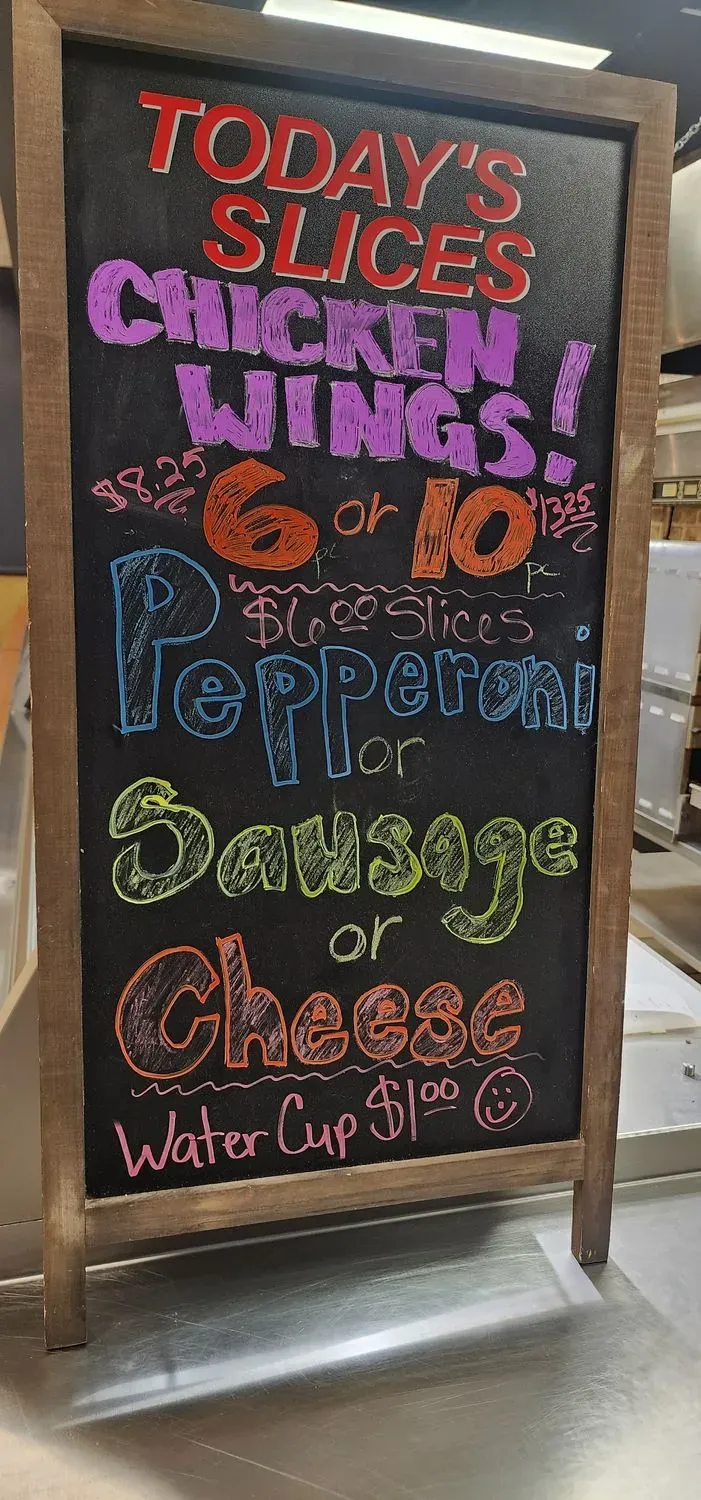 TODAY'S
SLICES
CHICKEN
WINGS!
$8.25 6 pc or 10 pc $13.25
$6.00 Slices
Pepperoni
or
Sausage
or
Cheese
Water Cup $1.00